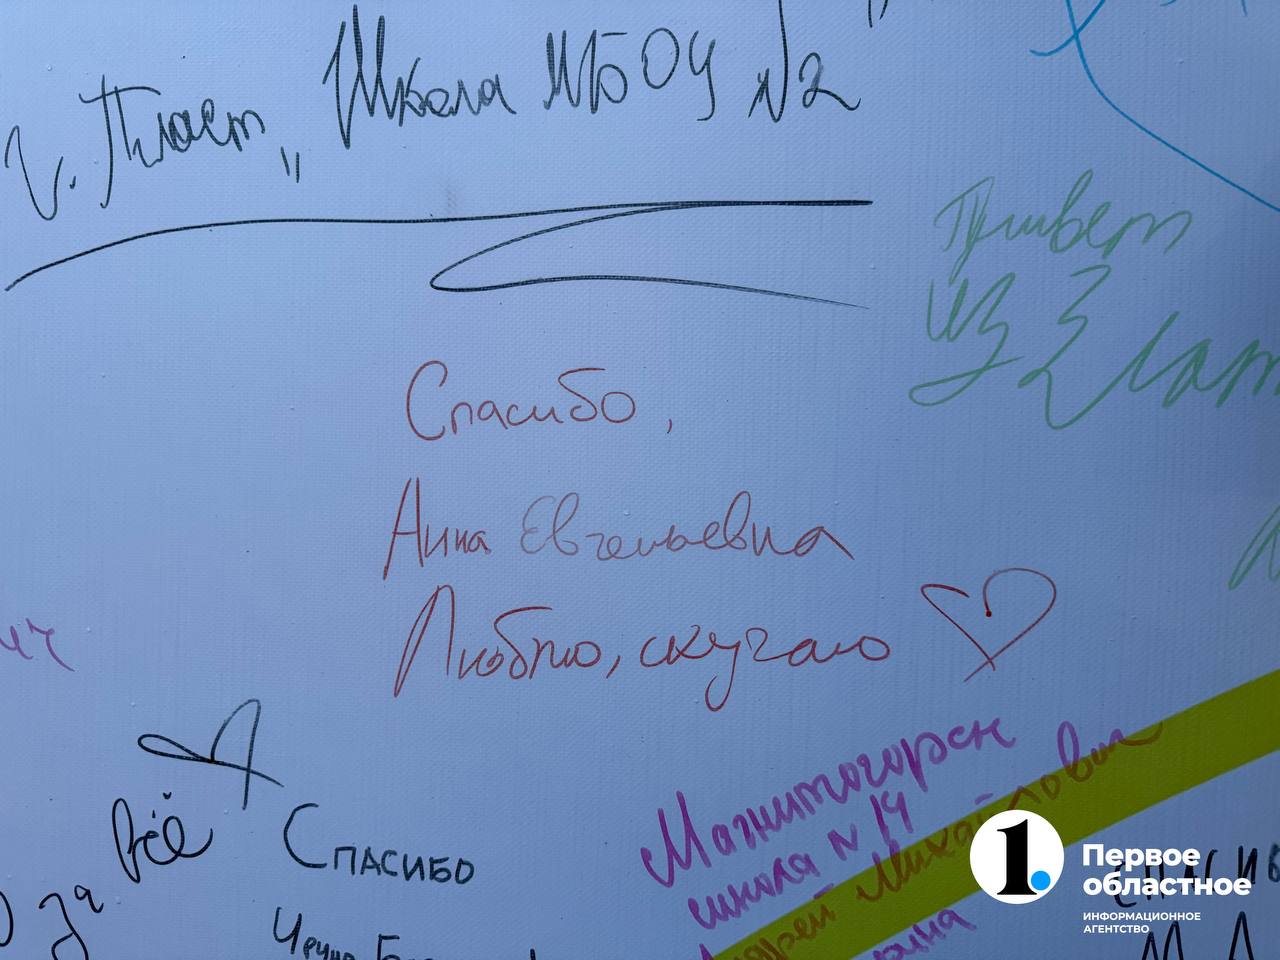 г. Пласт „Школа МБОУ №2"
Привет
из Злат
Спасибо,
Анна Евгеньевна
Люблю, скучаю
ич
всё
за
Спасибо
Магнитогорск
школа N 14
Андрей Михайлович
Спасиб
1.
Первое
областное
ИНФОРМАЦИОННОЕ
АГЕНТСТВО